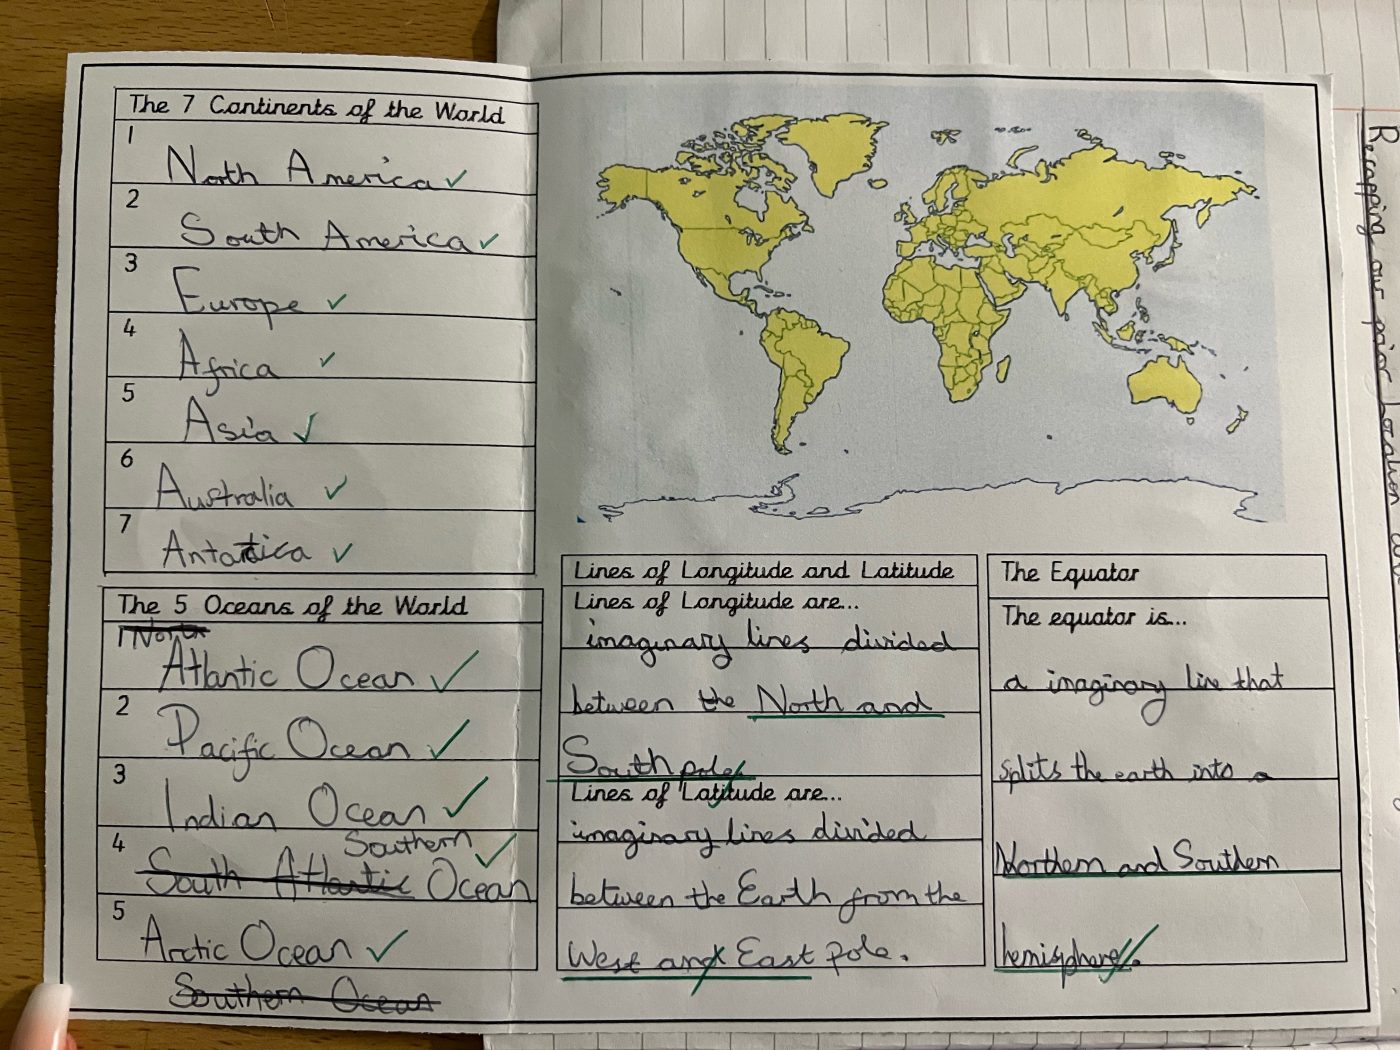 The 7 Continents of the World
1
North America
2
South America
3
Europe
4
Africa
5
Asia
6
Australia
7
Antartica
The 5 Oceans of the World
1 North
Atlantic Ocean
2
Pacific Ocean
3
Indian Ocean
4
Southern
South Atlantic Ocean
5
Arctic Ocean
Southern Ocean
Lines of Longitude and Latitude
Lines of Longitude are...
imaginary lines divided
between the North and
South pole
Lines of Latitude are...
imaginary lines divided
between the Earth from the
West and East pole.
The Equator
The equator is...
a imaginary line that
splits the earth into a
Northern and Southern
hemisphere.
Recapping our prior Location